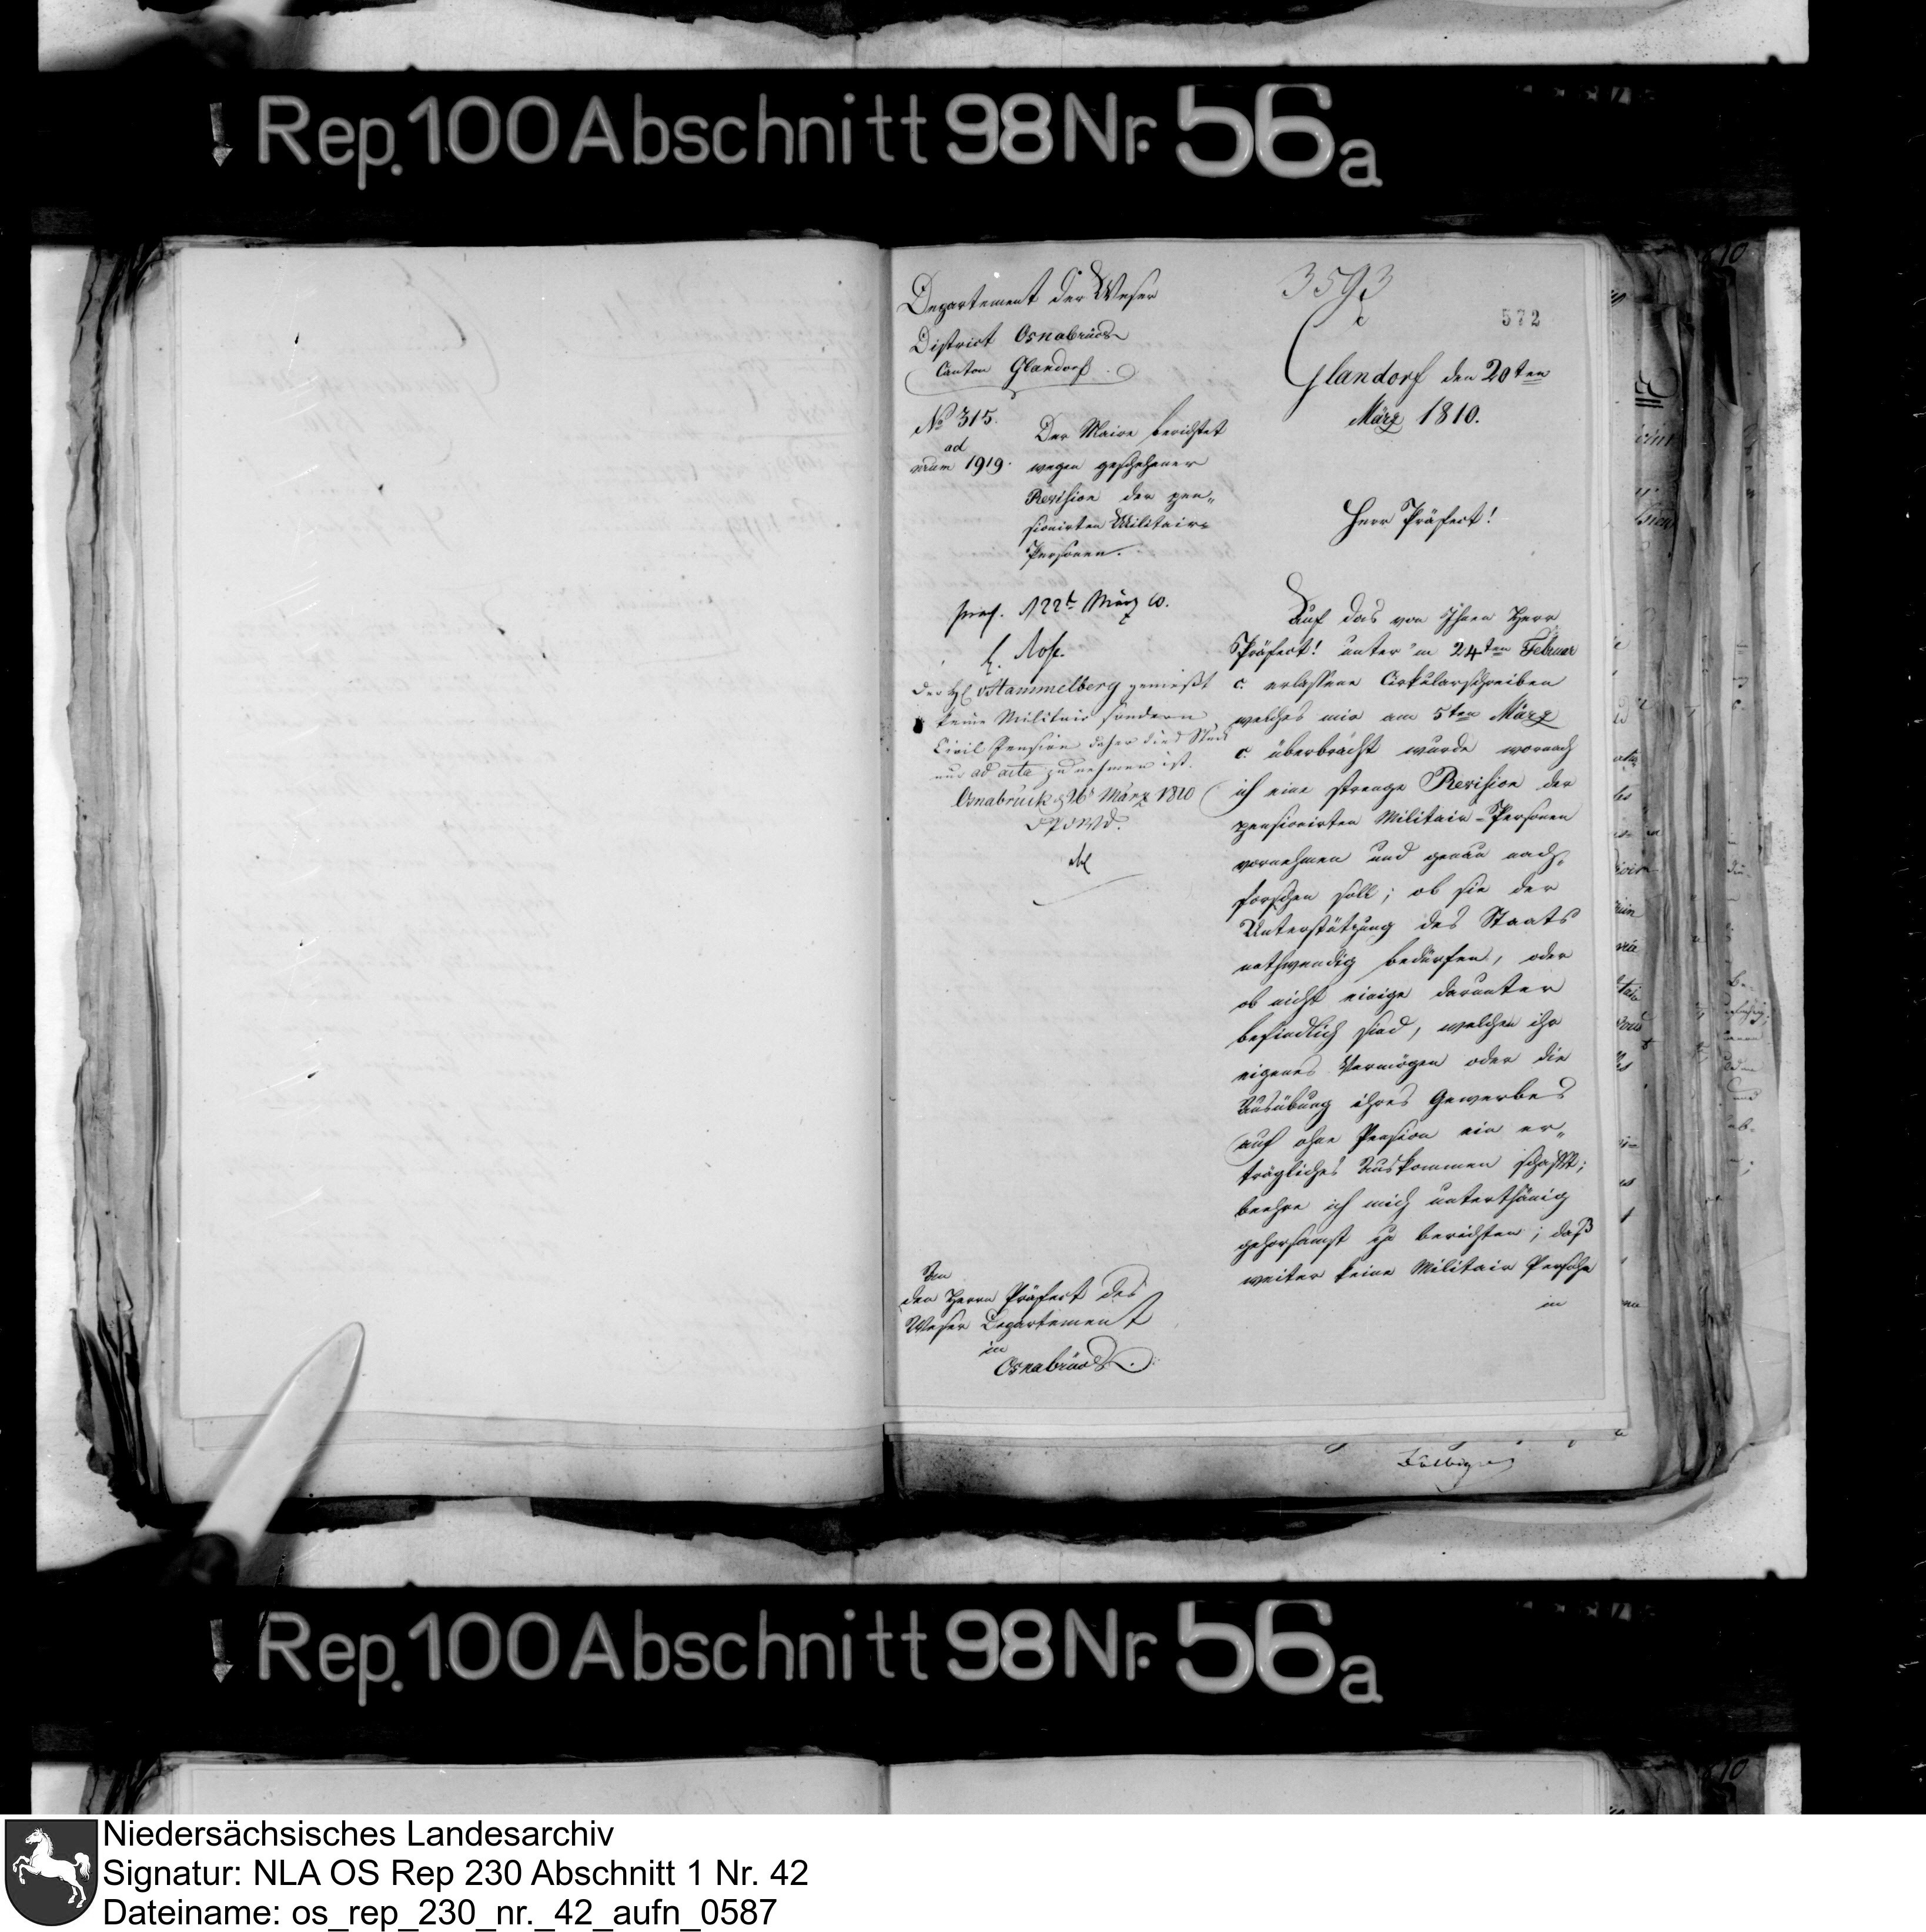 Rep. 100 Abschnitt 98 Nr. 56a
Departement der Weser
District Osnabrück
Canton Glandorf.
No 315.
ad
num 1919.
Der Maire berichtet
wegen geschehener
Revision der pen„
sionirten Militair
Personen.
3593
572
Glandorf den 20ten
März 1810.
Herr Präfect!
präs. März 10.
der H vStammelberg genießt
keine Militair sondern
Civil Pension daher dies Stück
nur ad acta zu nehmen ist.
Osnabrück März 1810
Auf das von Ihnen Herr
Präfect! unter'm 24ten Februar
c. erlassene Cirkularschreiben
welches mir am 5ten März
c. überbracht wurde wornach
ich eine strenge Revision der
pensionirten Militair-Personen
vornehmen und genau nach„
forschen soll; ob sie der
Unterstützung des Staats
nothwendig bedürfen, oder
ob nicht einige darunter
befindlich sind, welchen ihr
eigenes Vermögen oder die
Ausübung ihres Gewerbes
auch ohne Pension ein er„
trägliches Auskommen schafft;
beehre ich mich unterthänig
gehorsamst zu berichten; daß
weiter keine Militair Persohn
in
An
den Herrn Präfect des
Weser Departement
in
Osnabrück.
Rep. 100 Abschnitt 98 Nr. 56a
Niedersächsisches Landesarchiv
Signatur: NLA OS Rep 230 Abschnitt 1 Nr. 42
Dateiname: os_rep_230_nr._42_aufn_0587